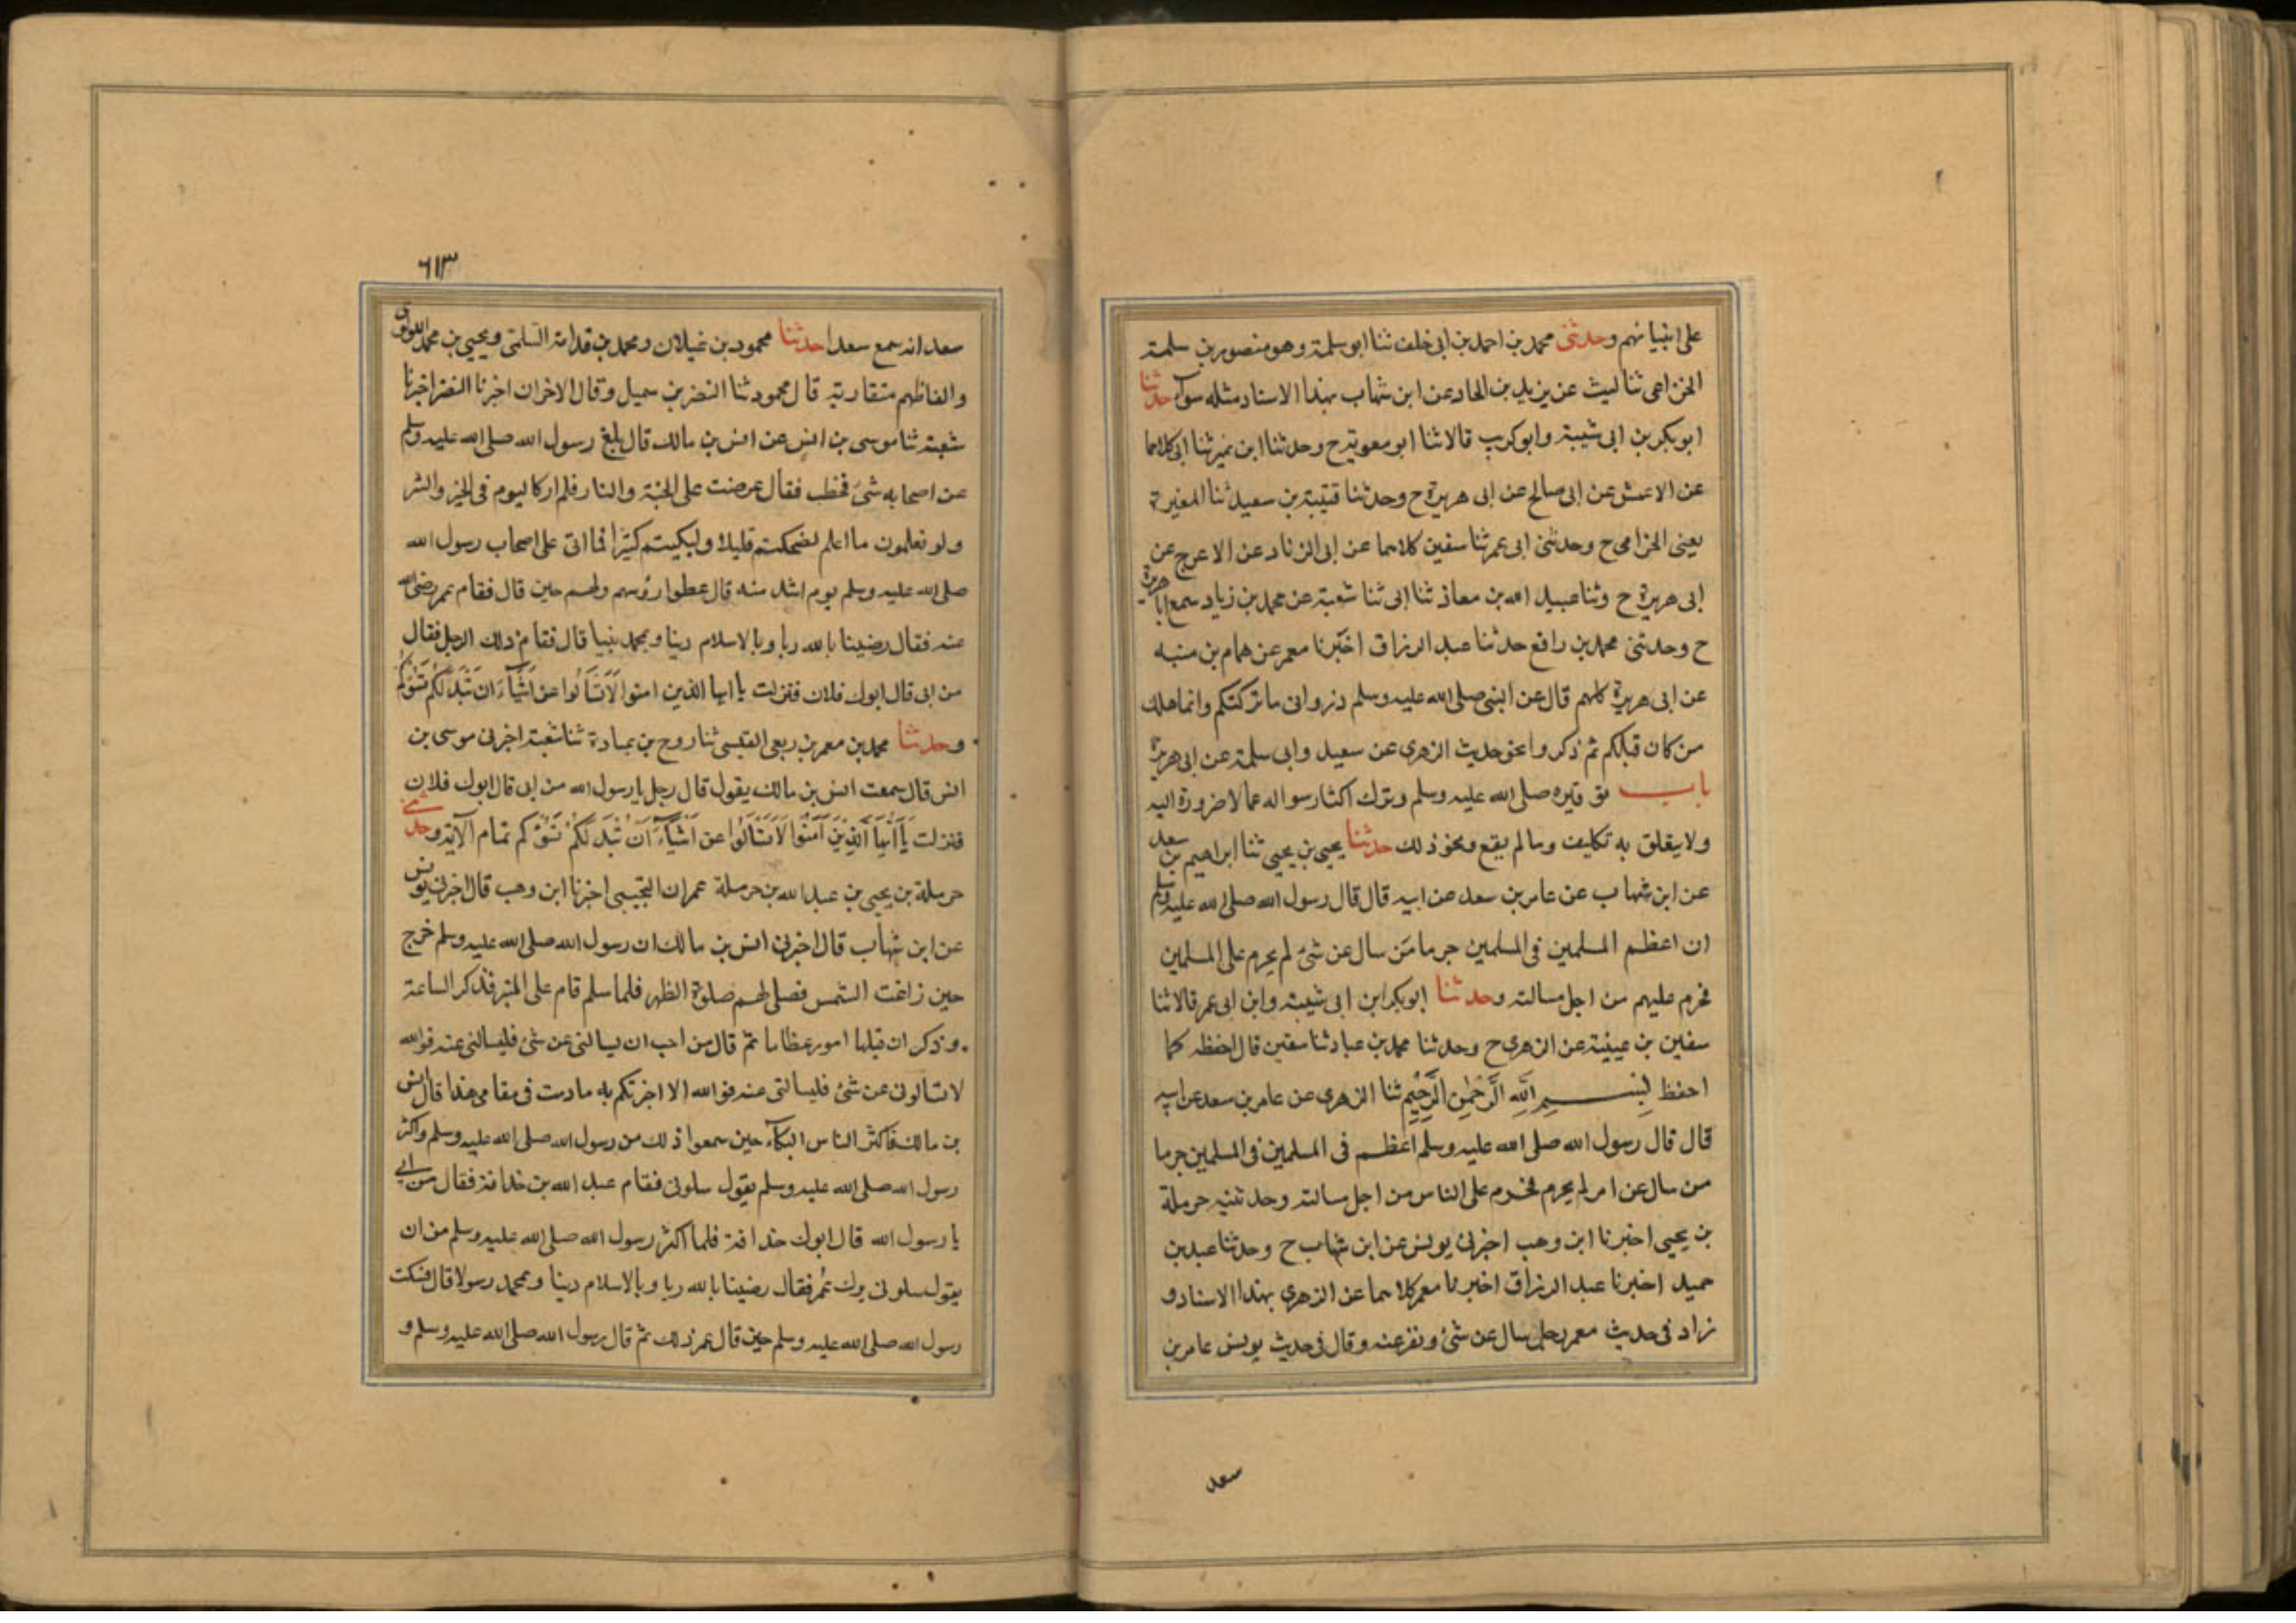 على انبيائهم وحدثنى محمد بن احمد بن ابى خلف ثنا ابو سلمة وهو منصور بن سلمة
الخزاعى ثنا ليث عن يزيد بن الهاد عن ابن شهاب بهذا الاسناد مثله سوآء حدثنا
ابو بكر بن ابى شيبة وابو كريب قالا ثنا ابو معوية ح وحدثنا ابن نمير ثنا ابى كلاهما
عن الاعمش عن ابى صالح عن ابى هريرة ح وحدثنا قتيبة بن سعيد ثنا المغيرة
يعنى الحزامى ح وحدثنى ابى عمر ثنا سفين كلاهما عن ابى الزناد عن الاعرج عن
ابى هريرة ح وثنا عبيد الله بن معاذ ثنا ابى ثنا شعبة عن محمد بن زياد سمع ابا هريرة
ح وحدثنى محمد بن رافع حدثنا عبد الرزاق اخبرنا معمر عن همام بن منبه
عن ابى هريرة كلهم قال عن النبى صلى الله عليه وسلم ذرونى ما تركتكم وانما هلك
من كان قبلكم ثم ذكروا نحو حديث الزهرى عن سعيد وابى سلمة عن ابى هريرة
باب توقيره صلى الله عليه وسلم وترك اكثار سواله عما لا ضرورة اليه
ولا يتعلق به تكليف وما لم يقع ونحو ذلك حدثنا يحيى بن يحيى ثنا ابراهيم بن سعد
عن ابن شهاب عن عامر بن سعد عن ابيه قال قال رسول الله صلى الله عليه وسلم
ان اعظم المسلمين فى المسلمين جرما من سال عن شئ لم يحرم على المسلمين
فحرم عليهم من اجل مسالته وحدثنا ابو بكر ابن ابى شيبة وابن ابى عمر قالا ثنا
سفين بن عيينة عن الزهرى ح وحدثنا محمد بن عباد ثنا سفين قال احفظه كما
احفظ بِسْمِ اللهِ الرَّحْمٰنِ الرَّحِيْمِ ثنا الزهرى عن عامر بن سعد عن ابيه
قال قال رسول الله صلى الله عليه وسلم اعظم فى المسلمين فى المسلمين جرما
من سال عن امر لم يحرم فحرم على الناس من اجل مسالته وحدثنيه حرملة
بن يحيى اخبرنا ابن وهب اخبرنى يونس عن ابن شهاب ح وحدثنا عبد بن
حميد اخبرنا عبد الرزاق اخبرنا معمر كلاهما عن الزهرى بهذا الاسناد و
زاد فى حديث معمر رجل سال عن شئ ونقر عنه وقال فى حديث يونس عامر بن
سعد
٦١٣
سعد انه سمع سعدا حدثنا محمود بن غيلان ومحمد بن قدامة السلمى ويحيى بن محمد اللؤلؤى
والفاظهم متقاربة قال محمود ثنا النضر بن سميل وقال الاخران اخبرنا النضر اخبرنا
شعبة ثنا موسى بن انس عن انس بن مالك قال بلغ رسول الله صلى الله عليه وسلم
عن اصحابه شئ فخطب فقال عرضت على الجنة والنار فلم ار كاليوم فى الخير والشر
ولو تعلمون ما اعلم لضحكتم قليلا ولبكيتم كثيرا فما اتى على اصحاب رسول الله
صلى الله عليه وسلم يوم اشد منه قال غطوا رؤسهم ولهم حنين قال فقام عمر رضى الله
عنه فقال رضينا بالله ربا وبالاسلام دينا وبمحمد نبيا قال فقام ذلك الرجل فقال
من ابى قال ابوك فلان فنزلت يا ايها الذين امنوا لَا تَسْأَلُوا عن اَشْيَآءَ ان تُبْدَ لَكُمْ تَسُؤْكُمْ
وحدثنا محمد بن معمر بن ربعى القيسى ثنا روح بن عبادة ثنا شعبة اخبرنى موسى بن
انس قال سمعت انس بن مالك يقول قال رجل يا رسول الله من ابى قال ابوك فلان
فنزلت يَا اَيُّهَا الَّذِيْنَ اٰمَنُوْا لَا تَسْأَلُوا عن اَشْيَآءَ اِنْ تُبْدَ لَكُمْ تَسُؤْكُم تمام الآية وحدثنى
حرملة بن يحيى بن عبد الله بن حرملة عمران التجيبى اخبرنا ابن وهب قال اخبرنى يونس
عن ابن شهاب قال اخبرنى انس بن مالك ان رسول الله صلى الله عليه وسلم خرج
حين زاغت الشمس فصلى لهم صلوة الظهر فلما سلم قام على المنبر فذكر الساعة
وذكر ان قبلها امور عظاما ثم قال من احب ان يسالنى عن شئ فليسالنى عنه فوالله
لا تسالونى عن شئ فليسالنى عنه فوالله الا اخبرتكم به ما دمت فى مقامى هذا قال انس
بن مالك فاكثر الناس البكآء حين سمعوا ذلك من رسول الله صلى الله عليه وسلم واكثر
رسول الله صلى الله عليه وسلم يقول سلونى فقام عبد الله بن حذافة فقال من ابى
يا رسول الله قال ابوك حذافة فلما اكثر رسول الله صلى الله عليه وسلم من ان
يقول سلونى برك عُمر فقال رضينا بالله ربا وبالاسلام دينا وبمحمد رسولا قال فسكت
رسول الله صلى الله عليه وسلم حين قال عمر ذلك ثم قال رسول الله صلى الله عليه وسلم و